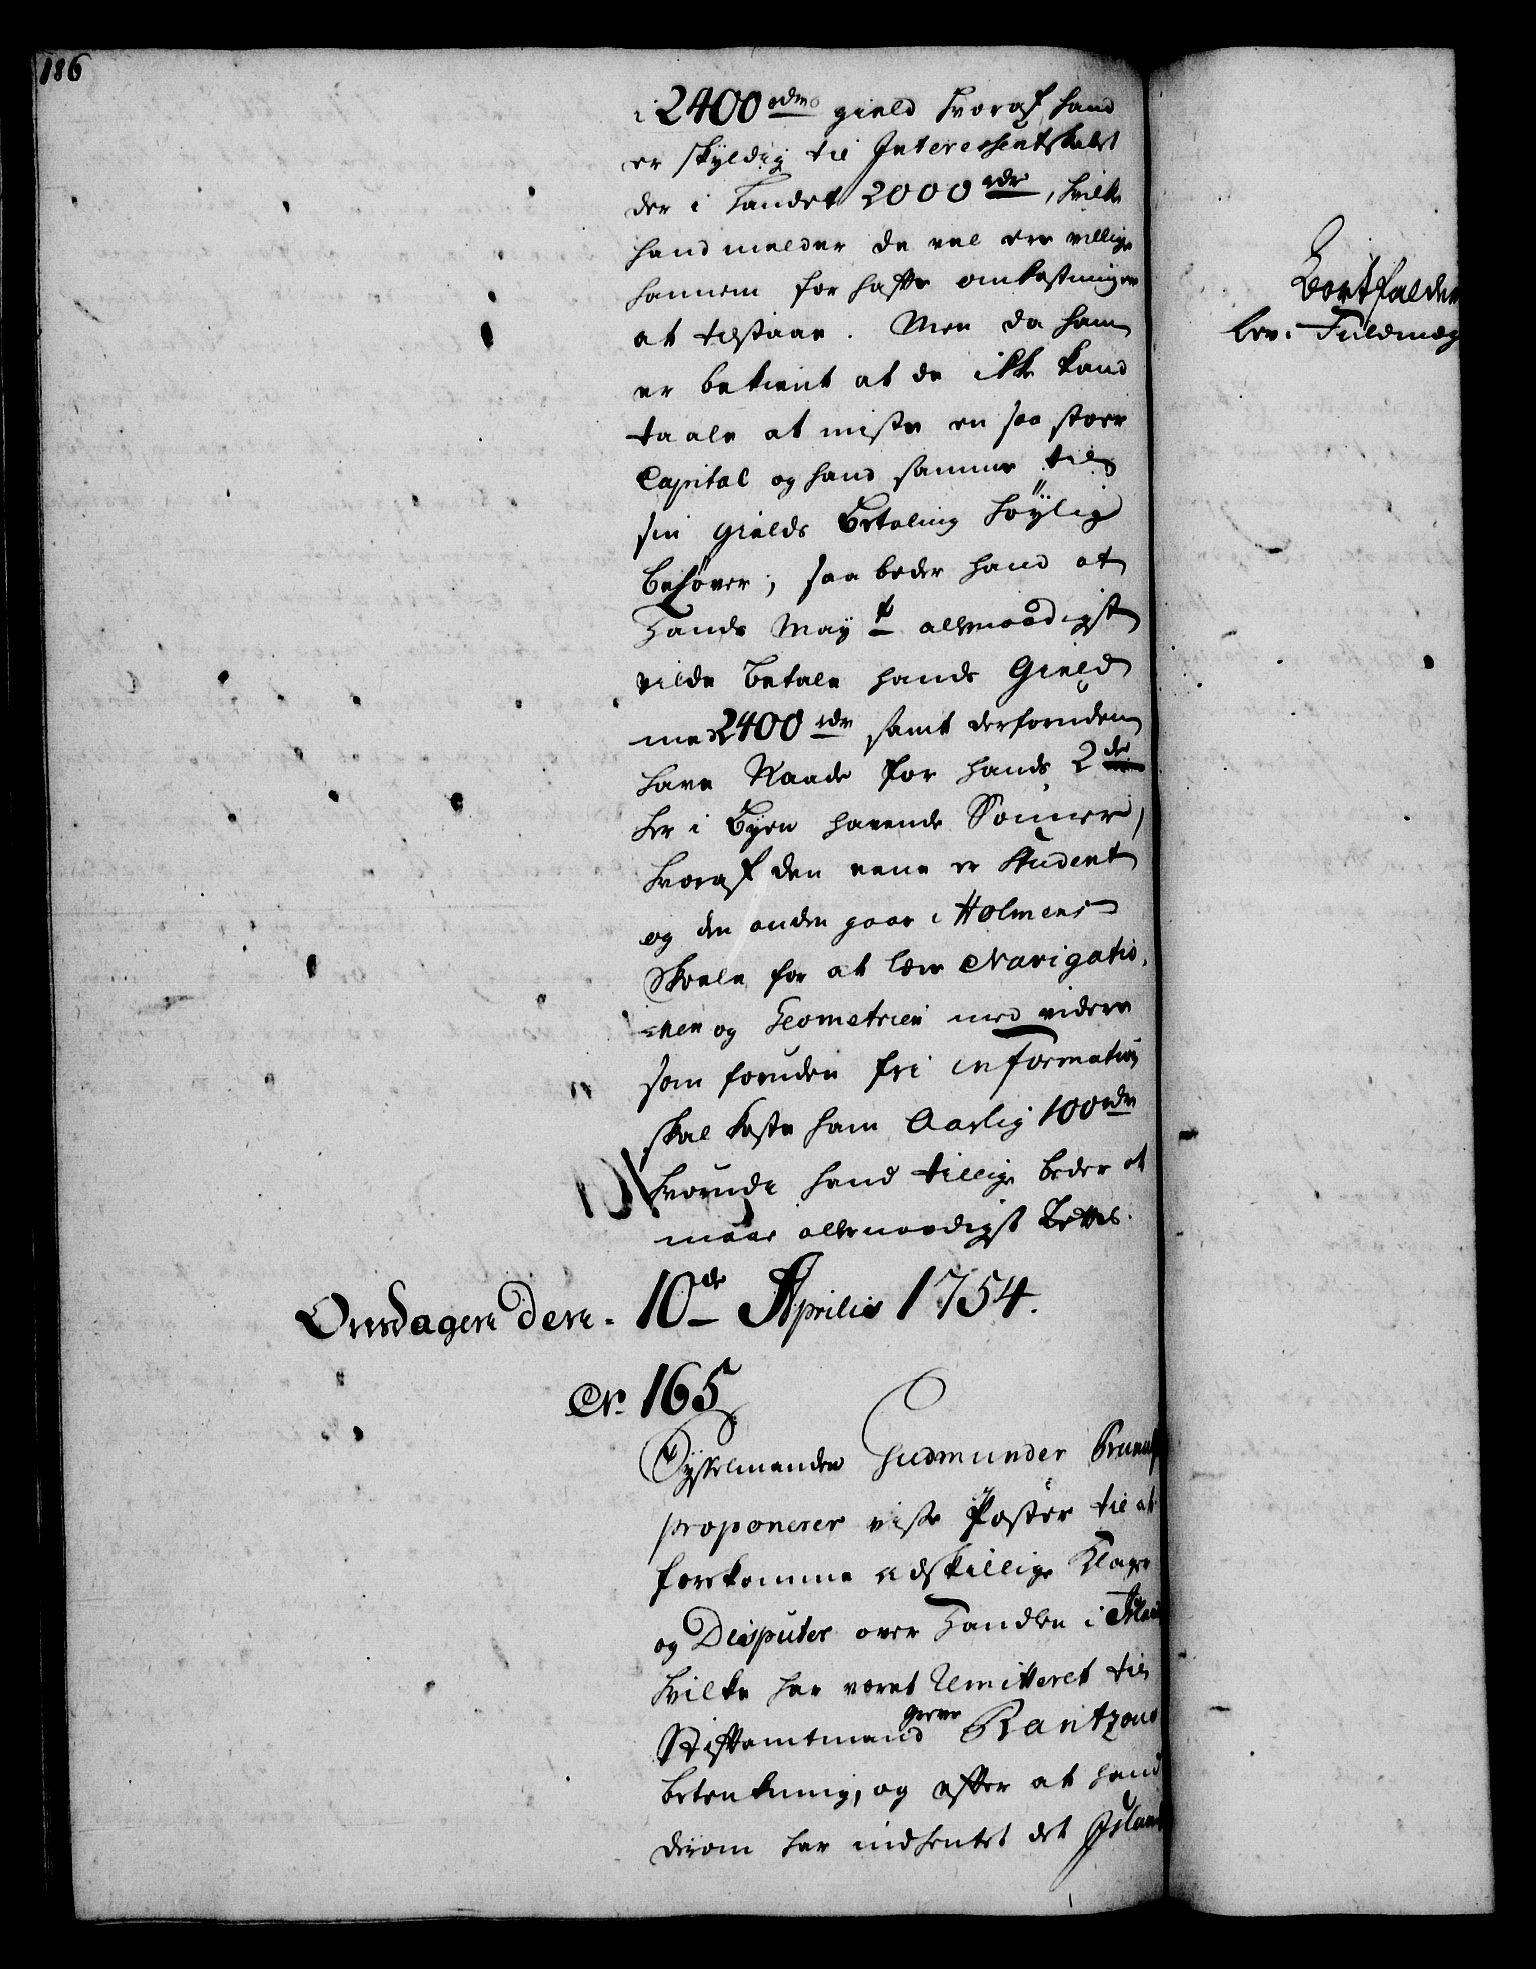 186
i 2400 rdr gield hvoraf hand
er skyldig til Interessentskabet
der i Landet 2000 rdr, hvilke
hand melder de vel ere villige
hannem for hafte omkostninger
at tilstaae. Men da ham
er bekient at de ikke kand
taale at miste en saa stoer
Capital og hand samme til
sin gields Betaling höylig
behöver; saa beder hand at
Hands May t allernaadigst
vilde betale hands Gield
me 2400 rdr samt desforuden
have Naade for hands 2 de
her i Byen havende Sönner,
hvoraf den eene er Student
og den anden gaar i Holmens
Skoele for at lære Navigatio-
nen og Geometrien med videre
som foruden fri information
skal koste ham Aarlig 100 rdr
hvorudi hand tillige beder at
maae allernaadigst
Onsdagen den 10de Aprilis 1754.
Nr. 165
Sysselmanden Gudmunder
proponerer visse Poster til at
forekomme adskillige Klager
og Disputer over Handlen i
hvilke har været Remitteret til
Stiftamtmand Greve Rantzous
betenkning, og efter at hand
derom har indhentet det
Bortfalder
lev. Fuldmæg